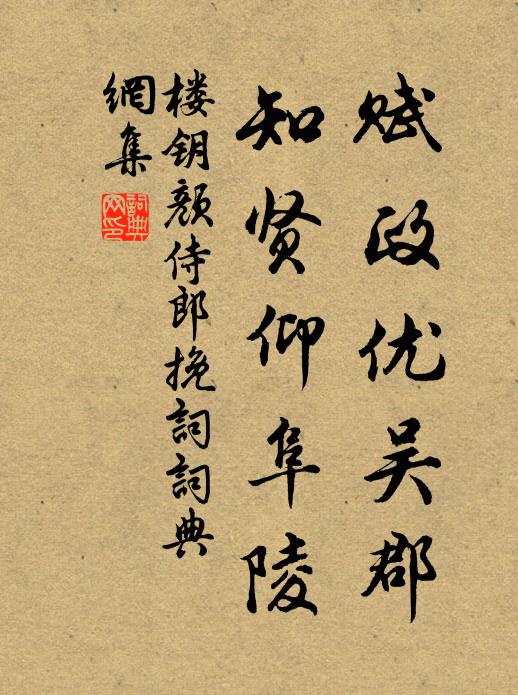 赋政优吴郡
知贤仰阜陵
楼钥颜侍郎挽詞詞典
網集
詞典网印